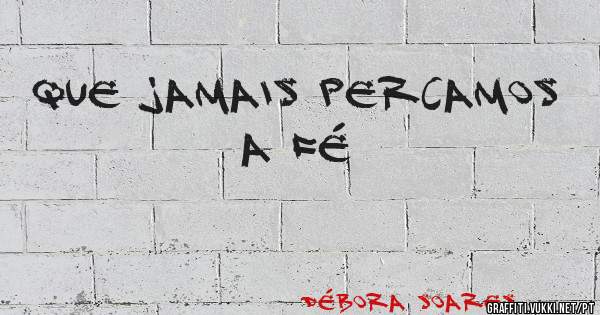 QUE JAMAIS PERCAMOS
A FÉ
DÉBORA SOARES
GRAFFITI.VUKKI.NET/PT